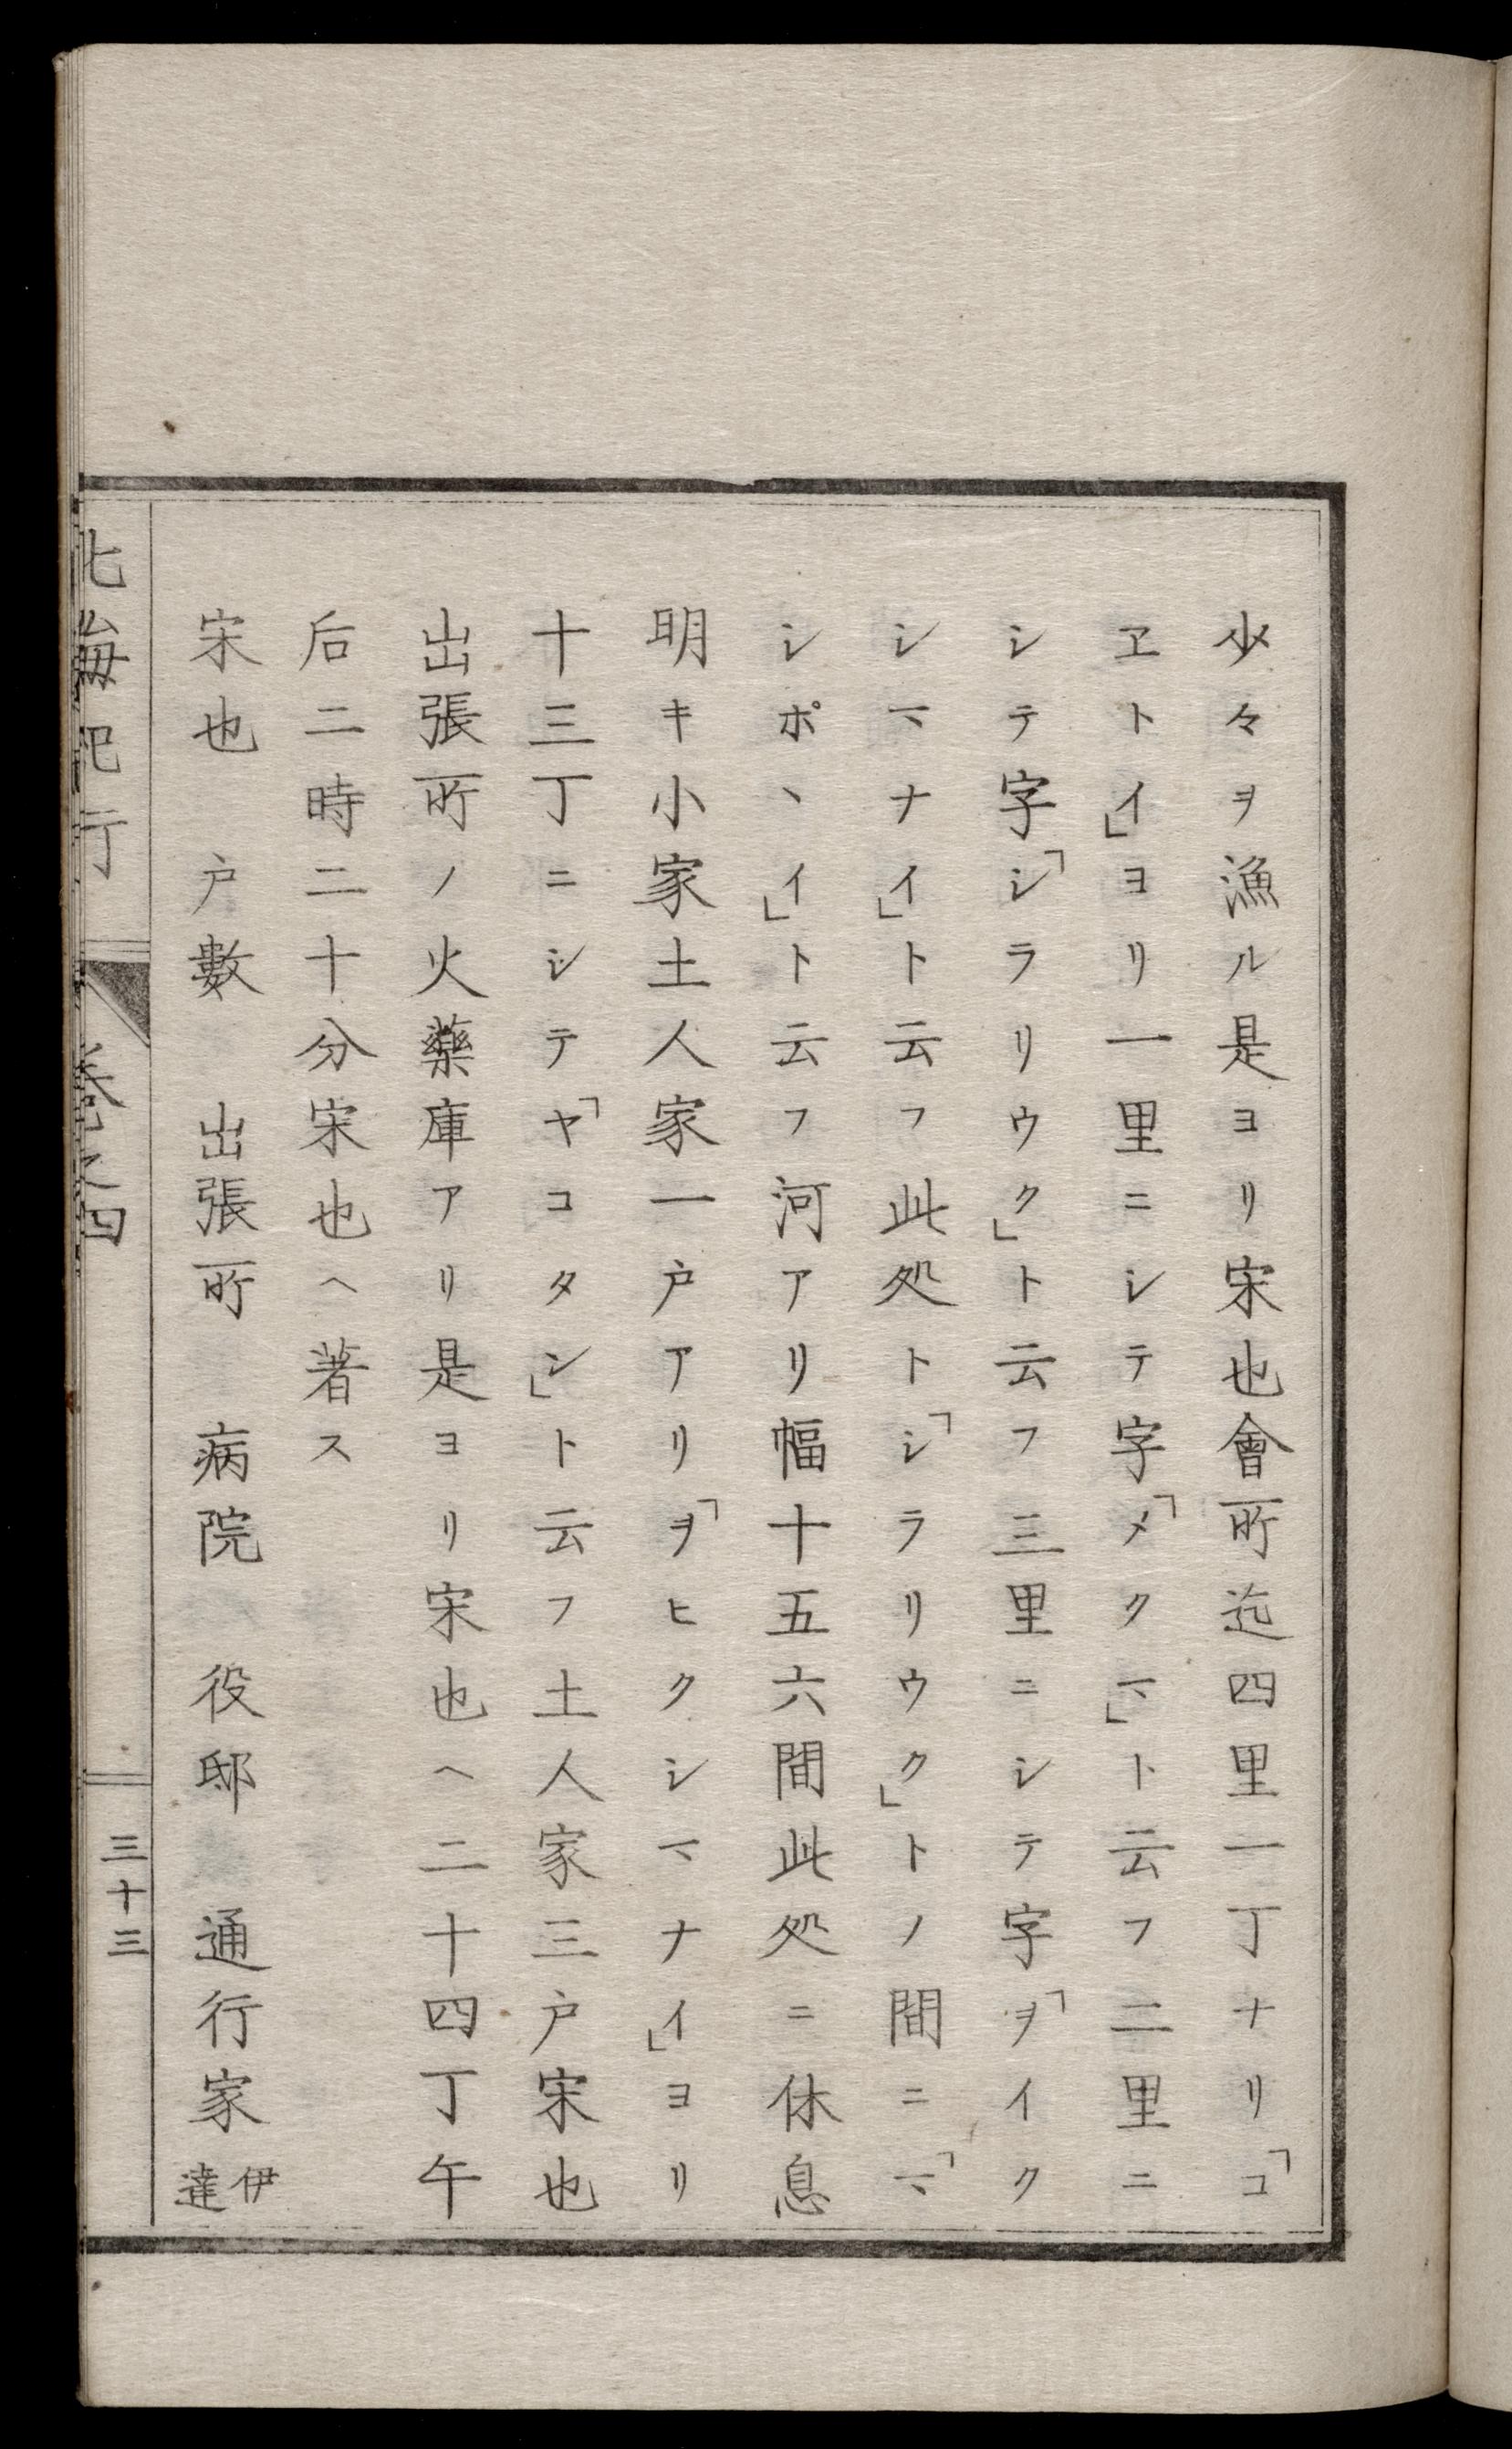 少々ヲ漁ル是ヨリ宗也會所迄四里一丁ナリ「コ
ヱトイ」ヨリ一里ニシテ字「メクマ」ト云フ二里ニ
シテ字「シラリウク」ト云フ三里ニシテ字「ヲイク
シマナイ」ト云フ此処ト「シラリウク」トノ間ニ「マ
シポヽイ」ト云フ河アリ幅十五六間此処ニ休息
明キ小家土人家一戸アリ「ヲヒクシマナイ」ヨリ
十三丁ニシテ「ヤコタン」ト云フ土人家三戸宗也
出張所ノ火藥庫アリ是ヨリ宗也ヘ二十四丁午
后二時二十分宗也ヘ著ス
宗也 戸數 出張所 病院 役邸 通行家 伊達
北海紀行 卷之四 三十三